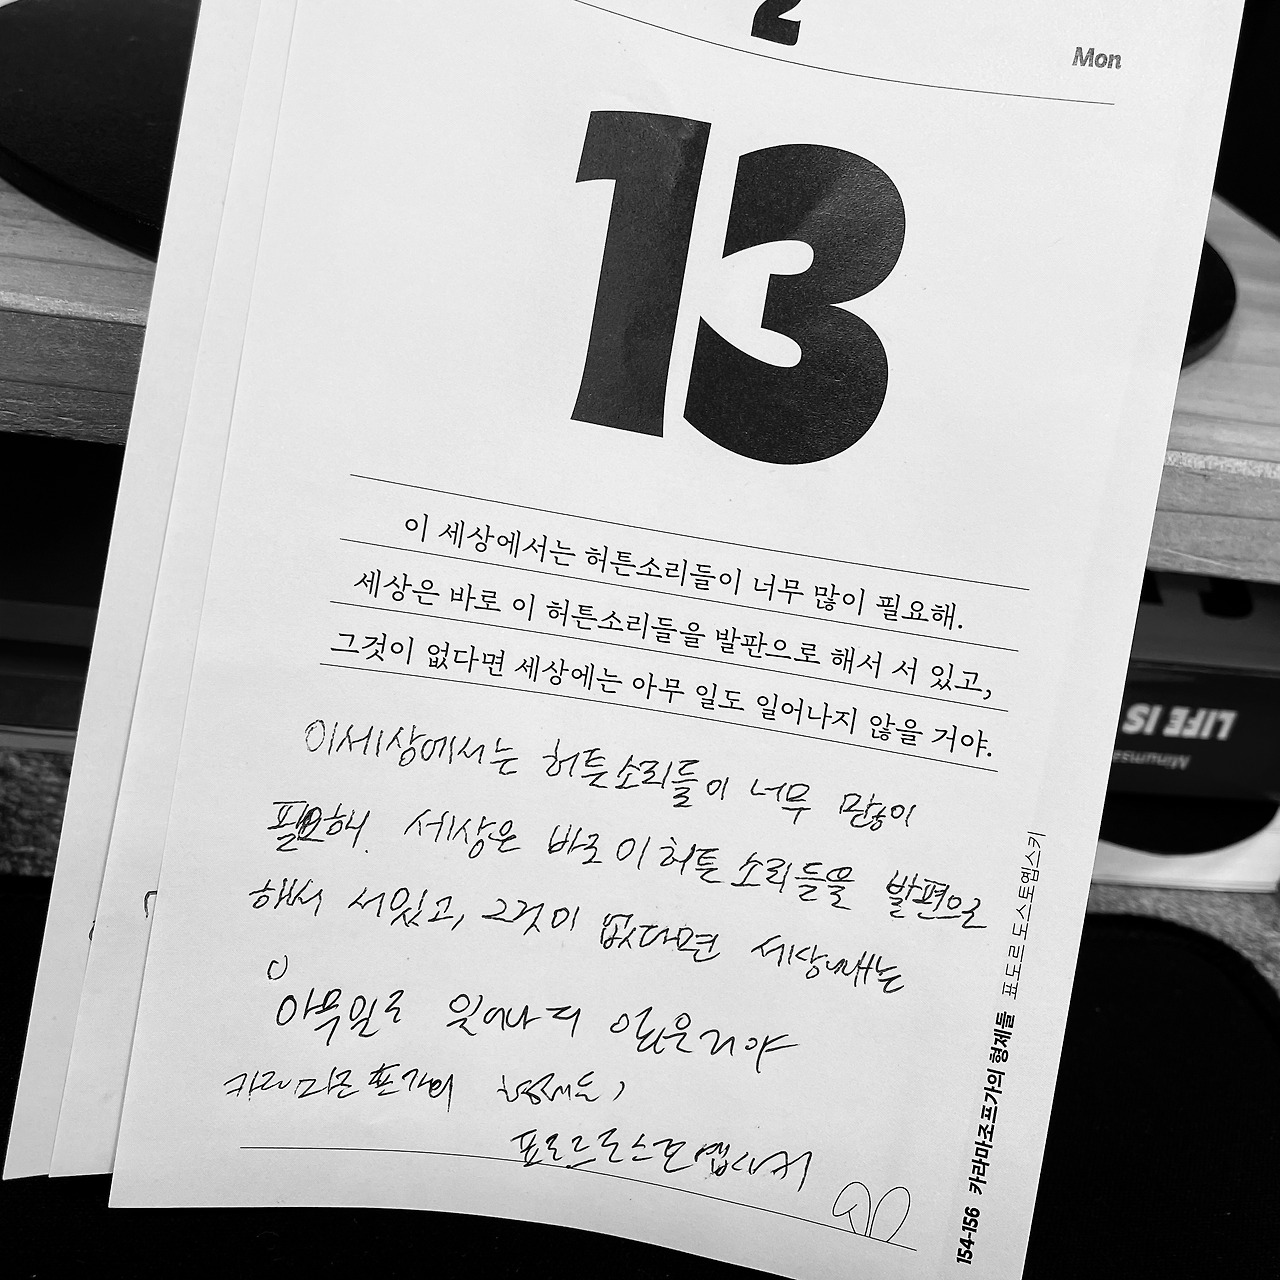 2
Mon
13
이 세상에서는 허튼소리들이 너무 많이 필요해.
세상은 바로 이 허튼소리들을 발판으로 해서 서 있고,
그것이 없다면 세상에는 아무 일도 일어나지 않을 거야.
이세상에서는 허튼소리들이 너무 많이
필요해. 세상은 바로 이 허튼 소리들을 발편으로
해서 서있고, 그것이 없다면 세상에는
아무일도 일어나지 않은거야
카라마조프가의 형제들,
표도르도스토옙스키
154-156 카라마조프가의 형제들 표도르 도스토옙스키
LIFE IS
Minumsa